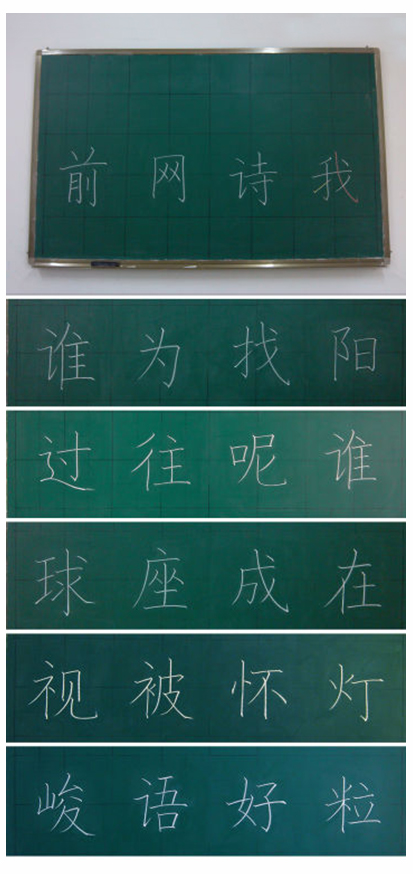 前网诗我
谁为找阳
过往呢谁
球座成在
视被怀灯
峻语好粒